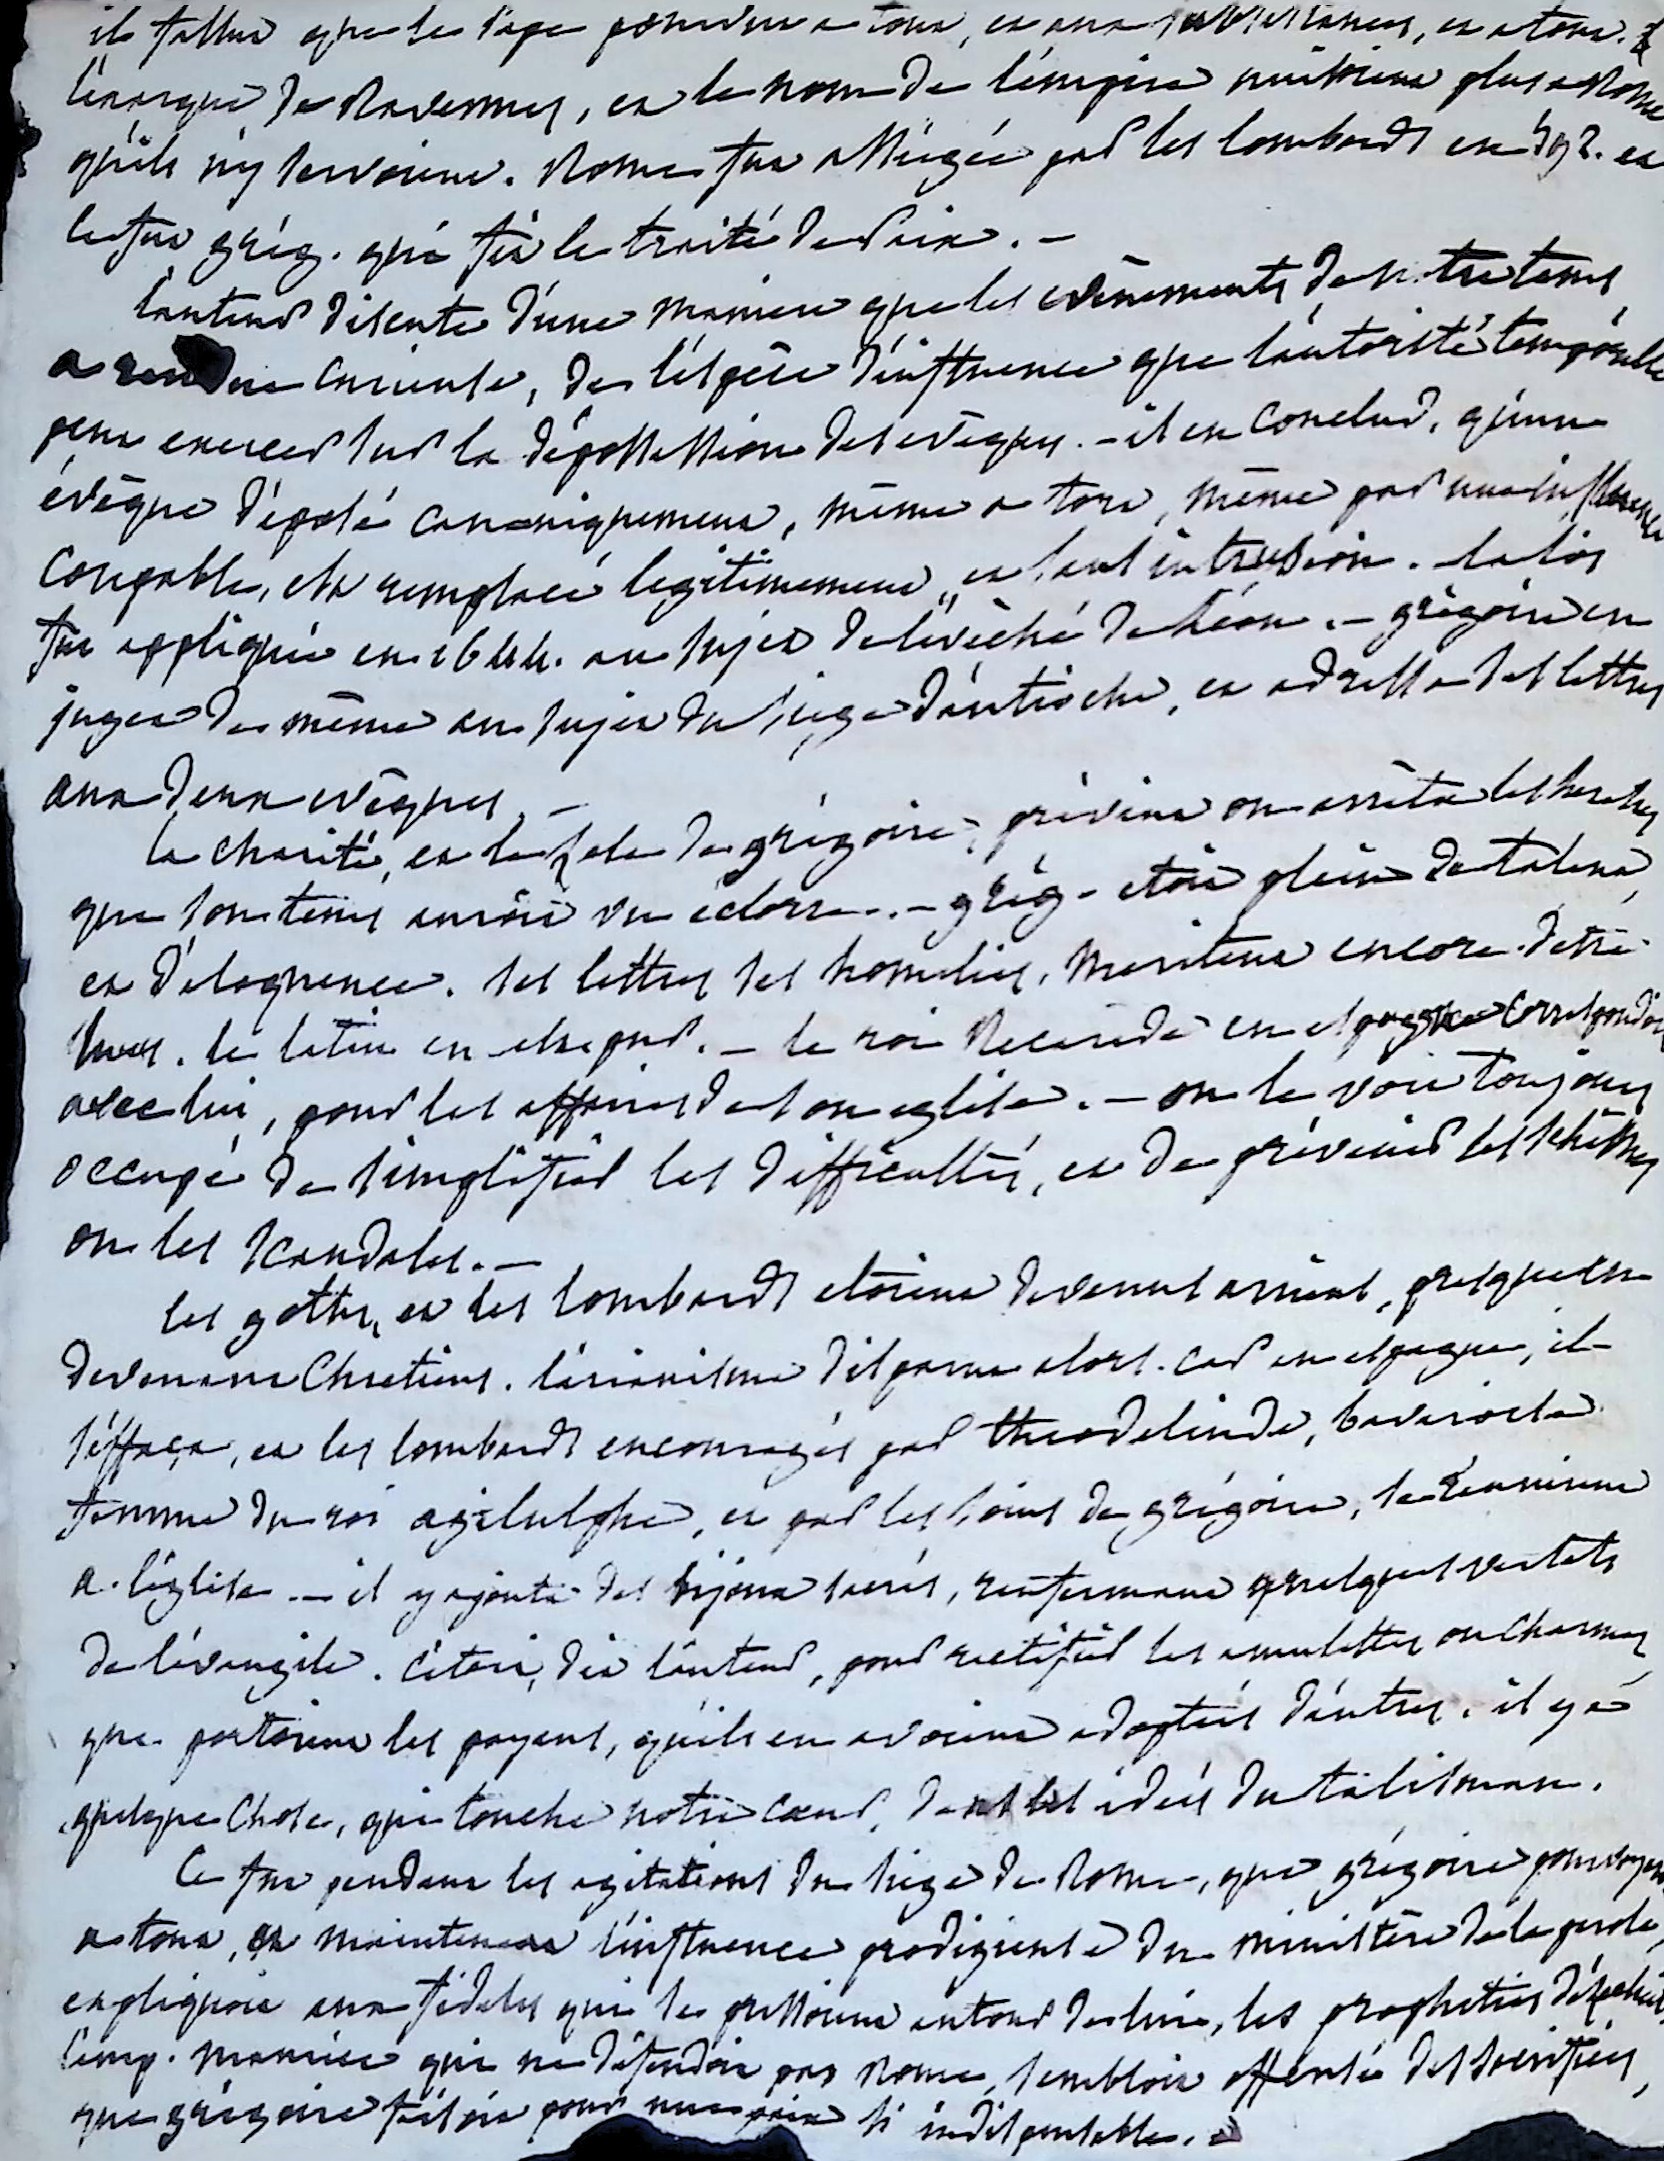 il fallut que le Pape pourvut a tout, et aux subsistances, et a tout.
l'exarque de Ravennes, et le nom de l'empire nuisoient plus a Rome
qu'ils n'y servoient. Rome fut assiégée par les lombards en 592. et
ce fut grég. qui fit le traité de Paix. –
l'auteur discute d'une maniere que les evènements de notre tems
a rendue curieuse, de l'espèce d'influence que l'autorité temporelle
peut exercer sur la dépossession des evêques. – il en conclud, qu'un
évêque déposé canoniquement, même a tort, même par une influence
coupable, est remplacé legitimement, et sans intrusion. – la loi
fut appliquée en 1644. au sujet de l'evêché de Léon. – grégoire en
jugea de même au sujet du siège d'antioche, et adressa ses lettres
aux deux evêques. –
la charité, et le zele de grégoire, prévint ou arrêta les heresies
que son tems auroit vu éclorre. – grég. etoit plein de talent,
et d'éloquence. ses lettres ses homelies, meritent encore d'être
lues. le latin en est pur. – le roi Recarede en espagne correspondoit
avec lui, pour les affaires de son eglise. – on le voit toujours
occupé de simplifier les difficultés, et de prévenir les schismes
ou les scandales. –
les goths, et les lombards etoient devenus ariens, presque en
devenant Chretiens. l'arianisme disparut alors. car en espagne, il
s'éffaça, et les lombards encouragés par theodelinde, bavaroise
femme du roi agilulphe, et par les soins de grégoire, se reunirent
a l'église. – il y ajouta des bijoux sacrés, renfermant quelques versets
de l'évangile. c'étoit, dit l'auteur, pour rectifier les amulettes ou charmes
que portoient les payens, qu'ils en avoient adoptés d'autres. il y a
quelque chose, qui touche notre cœur, dans les idées du talisman.
Ce fut pendant les agitations du siege de Rome, que grégoire pourvoyant
a tout, et maintenant l'influence prodigieuse du ministère de la parole,
expliquoit aux fideles qui se pressoient autour de lui, les propheties d'ézechiel,
l'emp. maurice qui ne défendoit pas Rome, sembloit offensé des sacrifices,
que grégoire faisoit pour une paix si indispensable. –